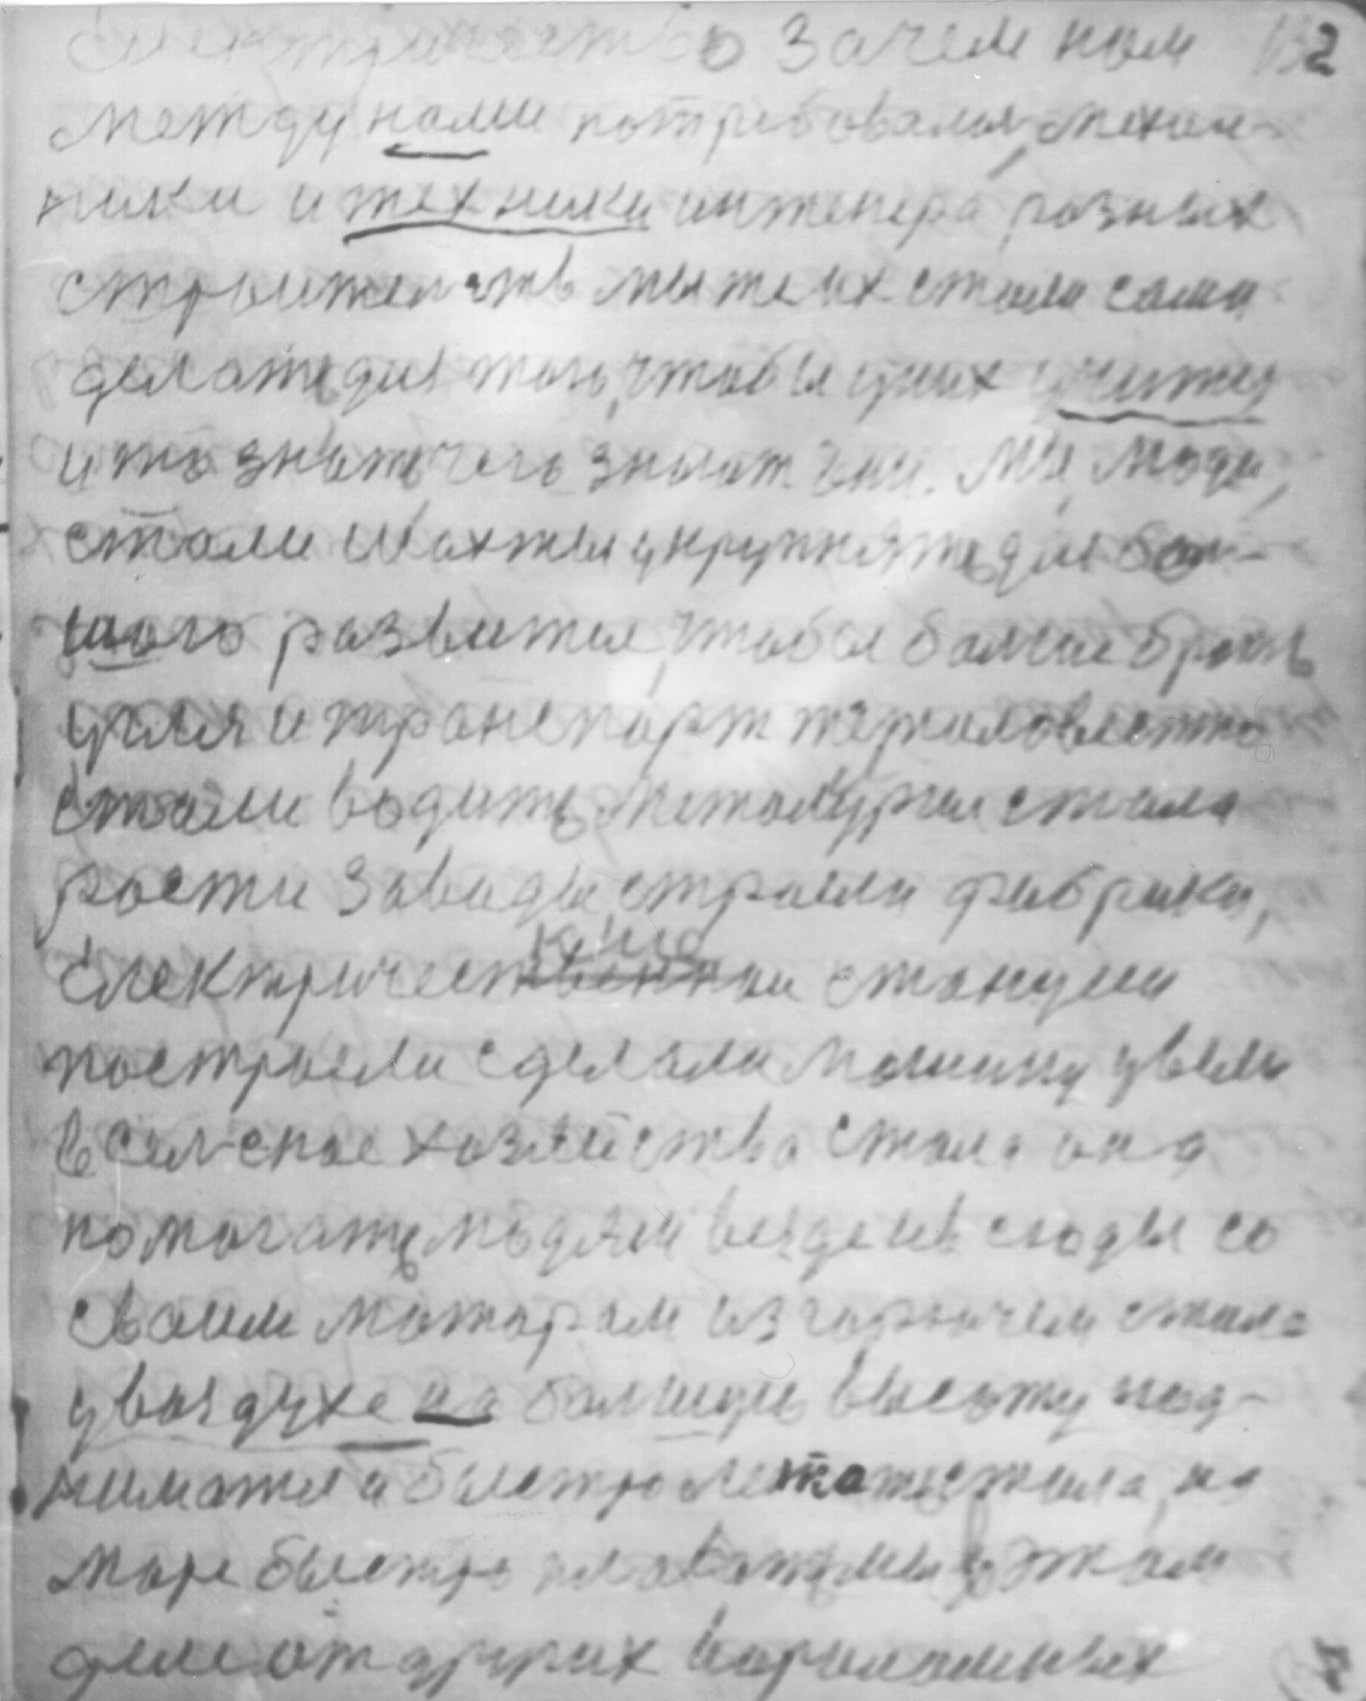 електричество Зачем нам 132
между нами потребовался механ-
ники и техники инженера разных
строительств мы же их стали сами
делать для того, чтобы у них учится
и то знать чего знают они. Мы, люди,
стали шахты укрупнять для бол-
шого развития, чтобы болше брать
угля и транспорт тежаловестно
стали водить, Металургия стала
рости Заводы строели фабрики,
електрические станции
построели сделали машину ввели
в селское хозяйства стала она
помогать людям везде в годы со
своим мотором из горючем стала
у воздухе на болшую высоту под-
ниматся и быстро летать стала, на
море быстро плавать мы в этом
деле от других